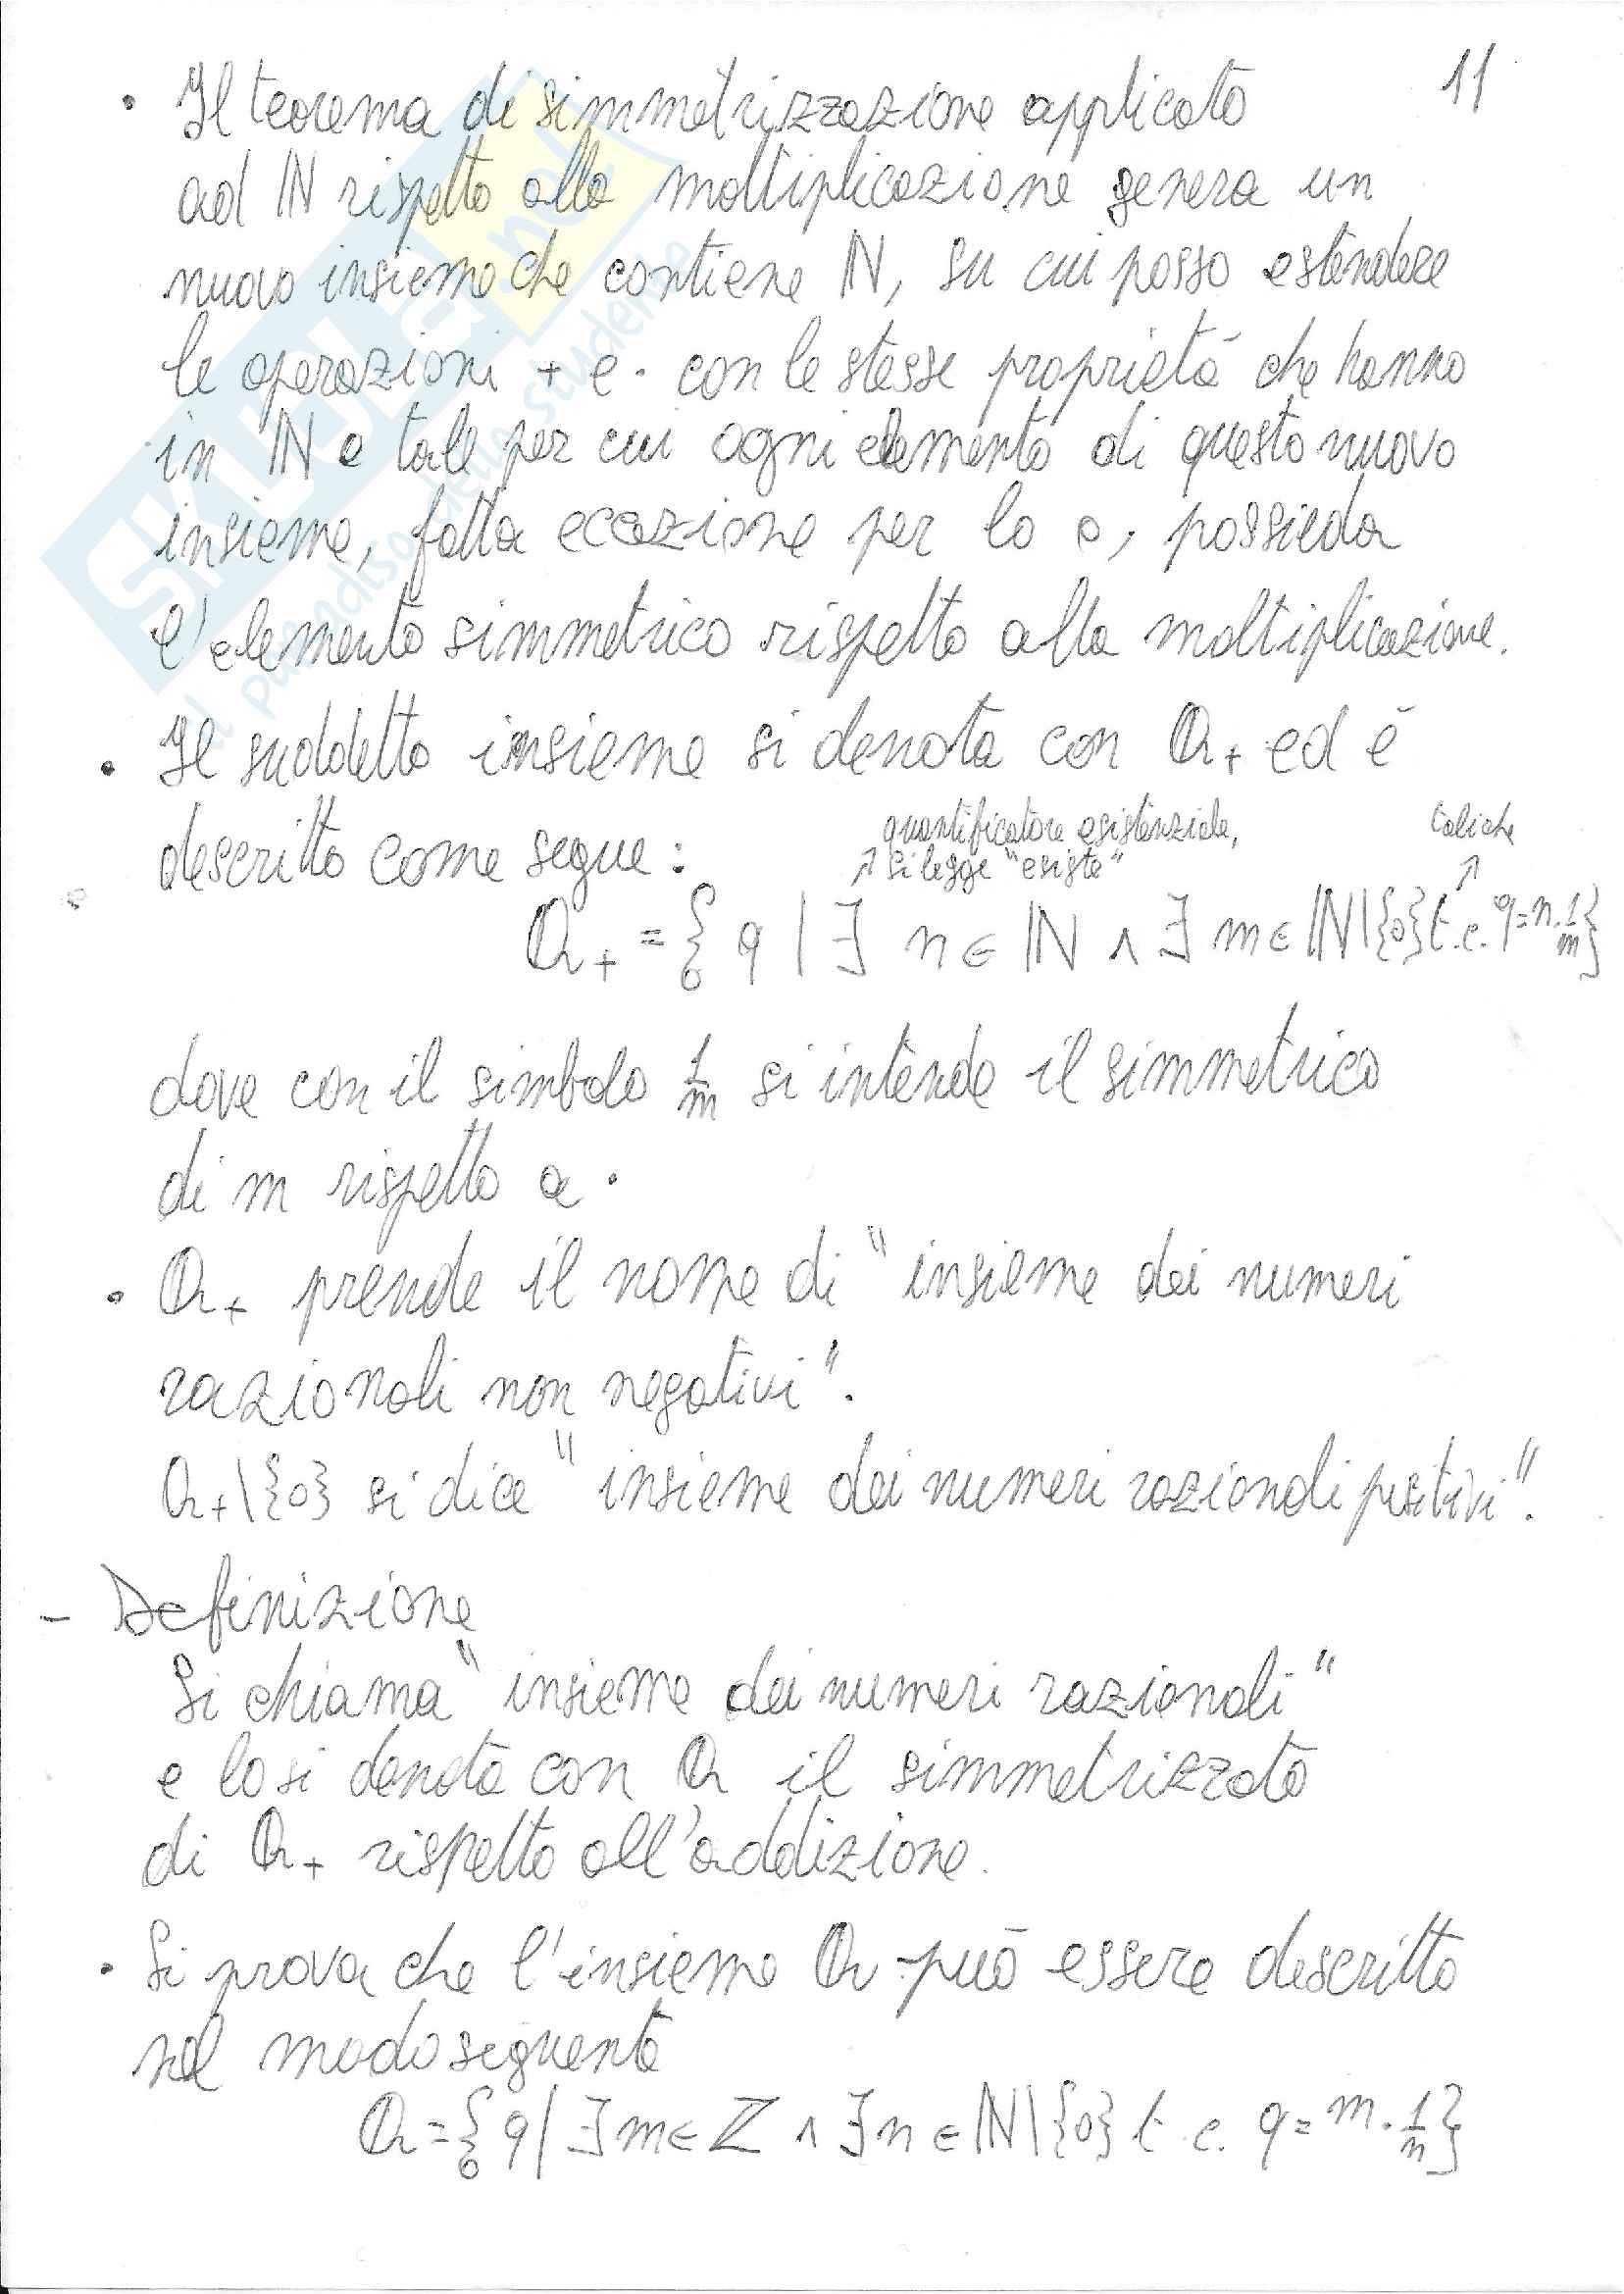 11
• Il teorema di simmetrizzazione applicato
ad ℕ rispetto alla moltiplicazione genera un
nuovo insieme che contiene ℕ, su cui posso estendere
le operazioni + e · con le stesse proprietà che hanno
in ℕ e tale per cui ogni elemento di questo nuovo
insieme, fatta eccezione per lo 0, possieda
l'elemento simmetrico rispetto alla moltiplicazione.
• Il suddetto insieme si denota con ℚ₊ ed è
descritto come segue:
quantificatore esistenziale,
↗ si legge "esiste"
tali che
↗
ℚ₊ = { q | ∃ n ∈ ℕ ∧ ∃ m ∈ ℕ\{0} t.c. q = n · 1/m }
dove con il simbolo 1/m si intende il simmetrico
di m rispetto a ·
• ℚ₊ prende il nome di "insieme dei numeri
razionali non negativi".
ℚ₊\{0} si dice "insieme dei numeri razionali positivi".
- Definizione
Si chiama "insieme dei numeri razionali"
e lo si denota con ℚ il simmetrizzato
di ℚ₊ rispetto all'addizione.
• Si prova che l'insieme ℚ può essere descritto
nel modo seguente
ℚ = { q | ∃ m ∈ ℤ ∧ ∃ n ∈ ℕ\{0} t.c. q = m · 1/n }
SKUOLA.net
il paradiso dello studente